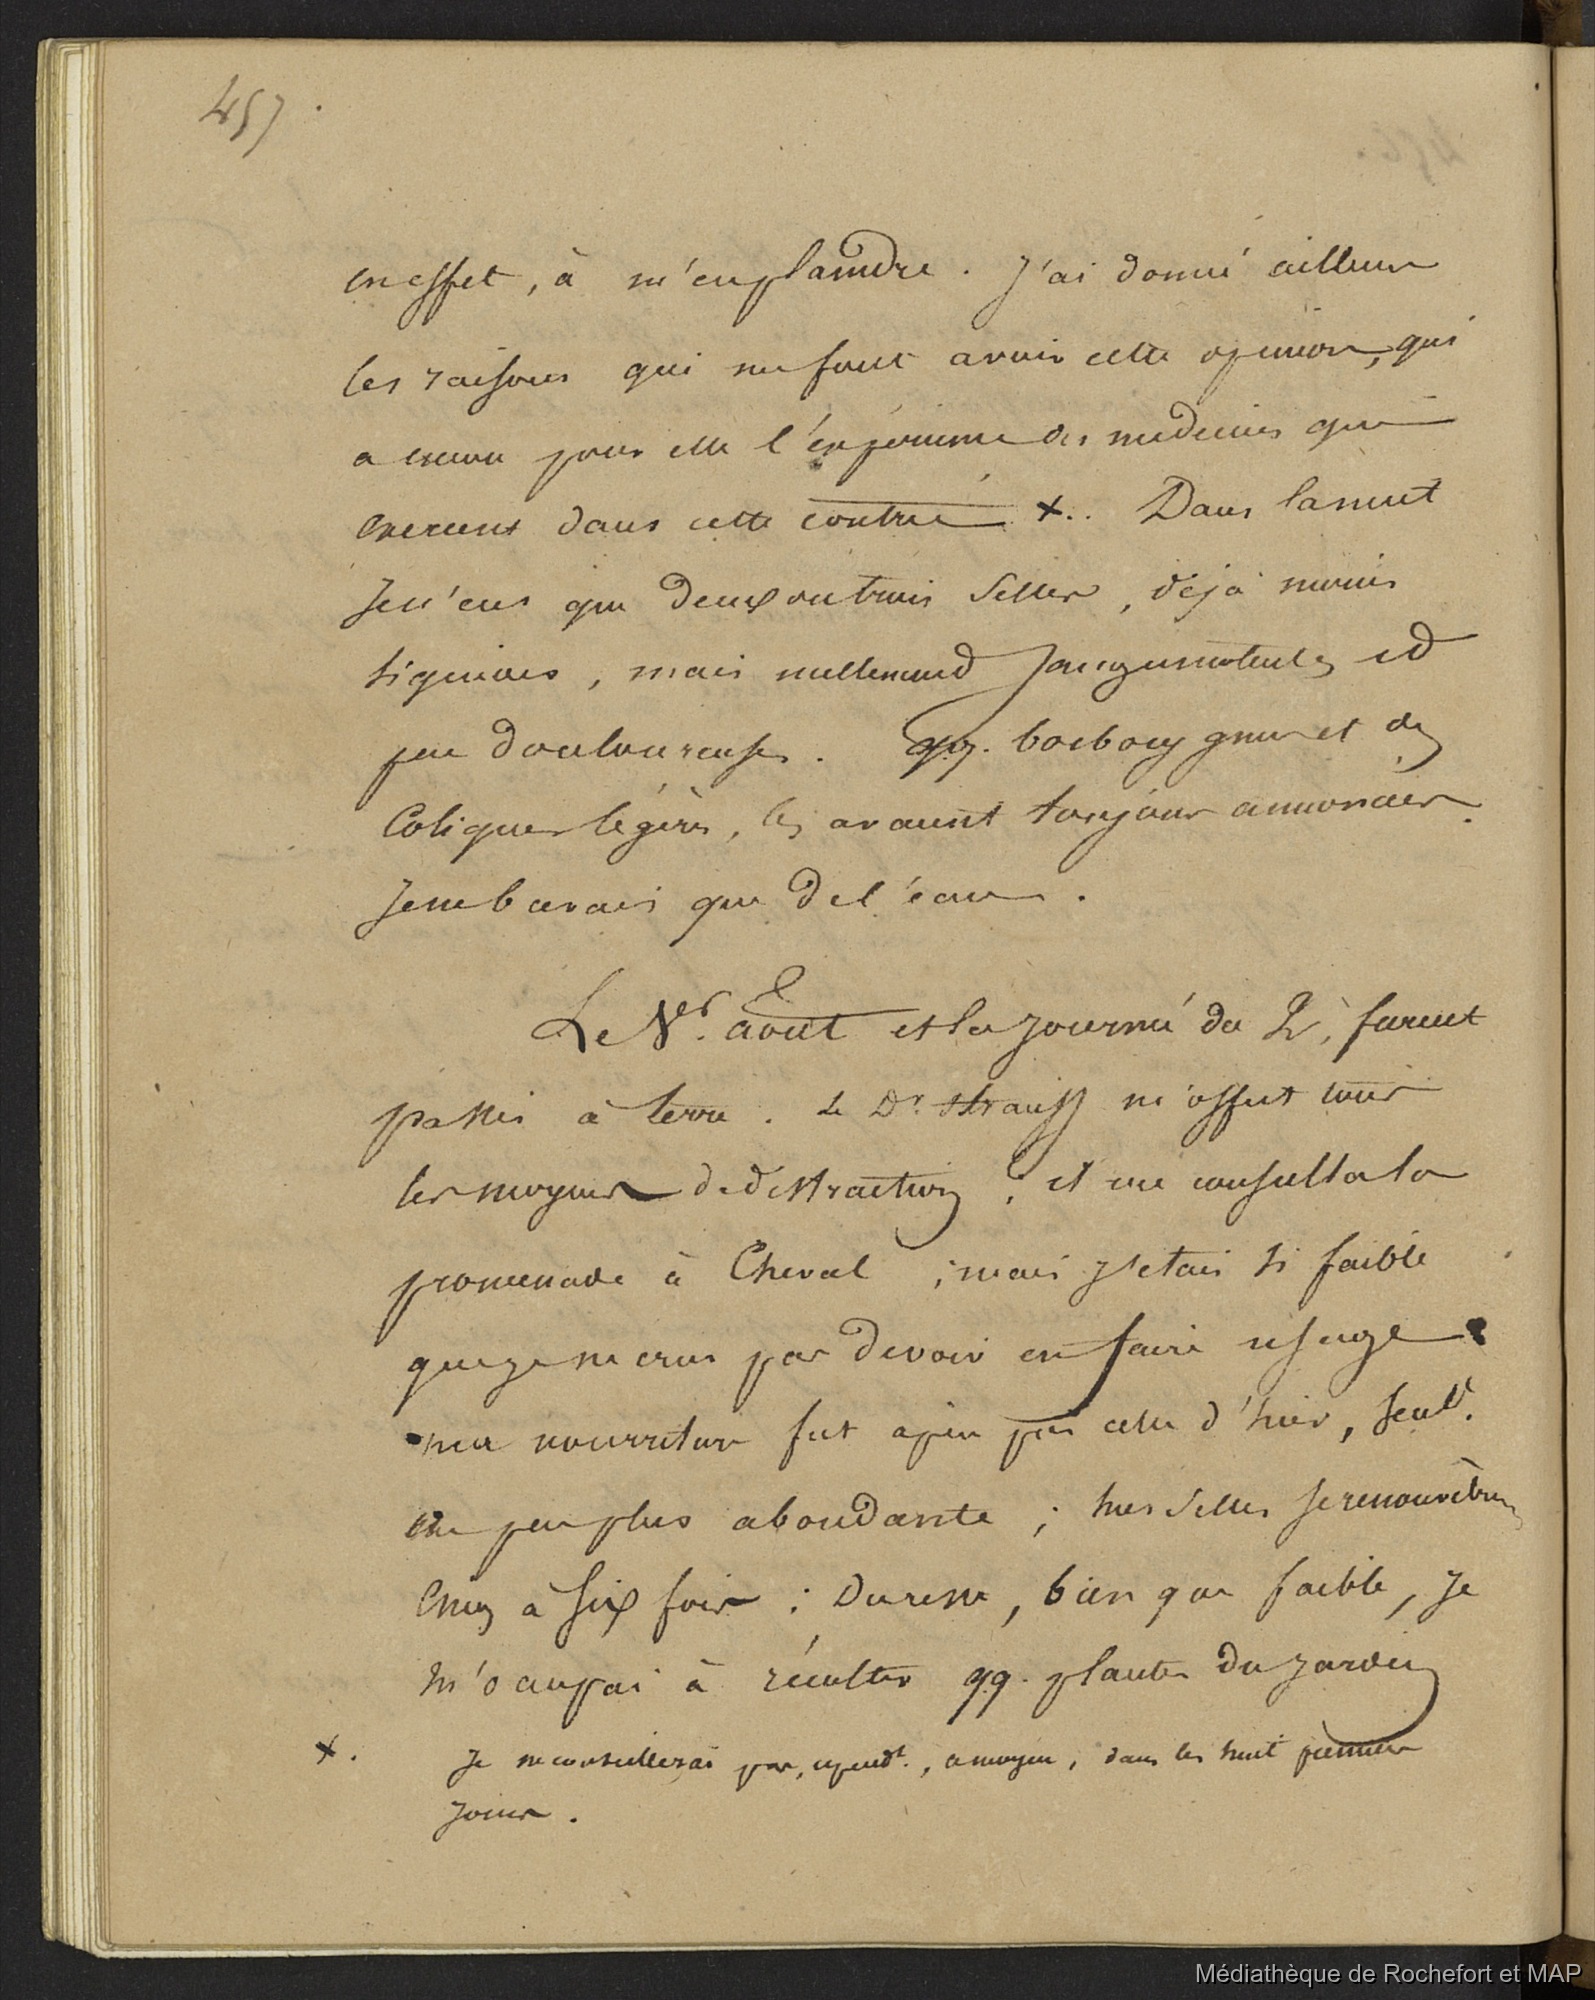 457.
en effet, à m'en plaindre. J'ai donné ailleurs
les raisons qui me font avoir cette opinion, qui
a encore pour elle l'expérience des medecins qui
exercent dans cette contrée x.. Dans la nuit
Je n'eus que deux ou trois Selles, déjà moins
liquides, mais nullement Sanguinolentes et
peu douloureuses. qq. borborygmes et des
Coliques légères, les avaient toujours annoncées.
Je ne buvais que de l'eau.
Le 1er. août et la journée du 2, furent
passés à terre. Le Dr. Strauss m'offrit tous
les moyens de distraction ; et me conseilla la
promenade à Cheval ; mais j'étais si faible
que je ne crus pas devoir en faire usage.
ma nourriture fut à peu près celle d'hier, Seult.
un peu plus abondante ; mes Selles se renouvelèrent
Cinq à Six fois : Du reste, bien que faible, Je
m'occupai à récolter qq. plantes du jardin
x. Je ne conseillerai pas, cepend.t, ce moyen, dans les huit premiers
jours.
Médiathèque de Rochefort et MAP